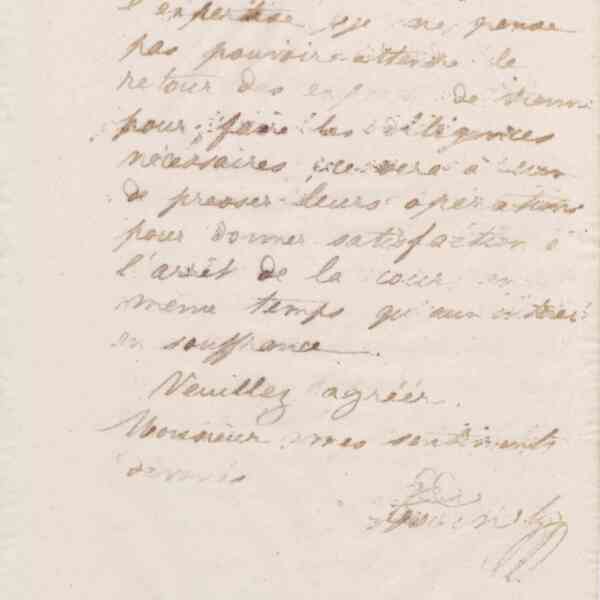 l'expertise, je ne pense
pas pouvoir attendre le
retour des de
pour faire les diligences
nécessaires ce sera à eux
de presser leurs opérations
pour donner satisfaction à
l'arrêt de la cour en
meme temps qu'aux intérêts
en souffrance.
Veuillez agréer.
Monsieur mes sentiments
dévoués